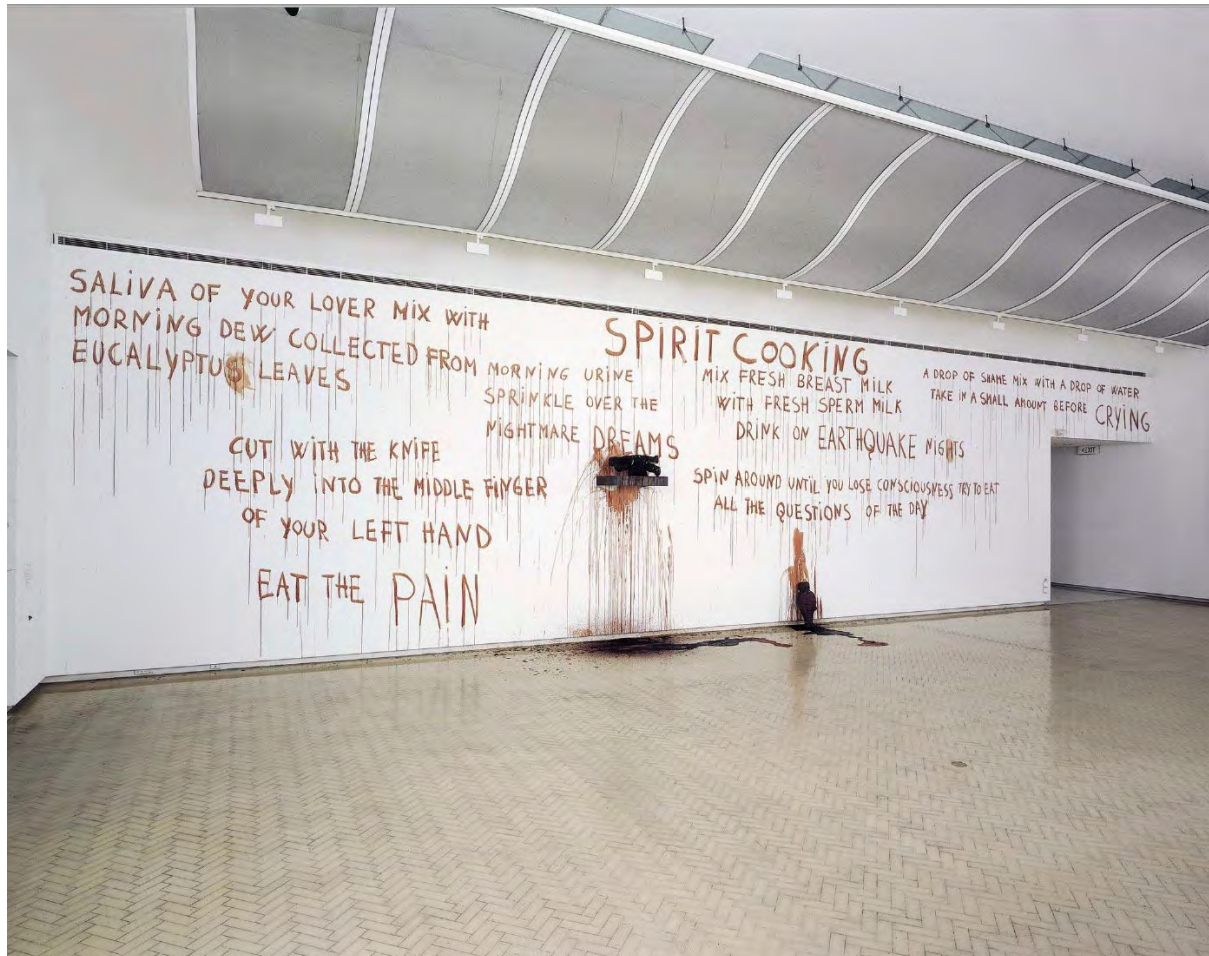 SALIVA OF YOUR LOVER MIX WITH
MORNING DEW COLLECTED FROM
EUCALYPTUS LEAVES
CUT WITH THE KNIFE
DEEPLY INTO THE MIDDLE FINGER
OF YOUR LEFT HAND
EAT THE PAIN
SPIRIT COOKING
MORNING URINE
SPRINKLE OVER THE
NIGHTMARE DREAMS
MIX FRESH BREAST MILK
WITH FRESH SPERM MILK
DRINK ON EARTHQUAKE NIGHTS
SPIN AROUND UNTIL YOU LOSE CONSCIOUSNESS TRY TO EAT
ALL THE QUESTIONS OF THE DAY
A DROP OF SHAME MIX WITH A DROP OF WATER
TAKE IN A SMALL AMOUNT BEFORE CRYING
EXIT